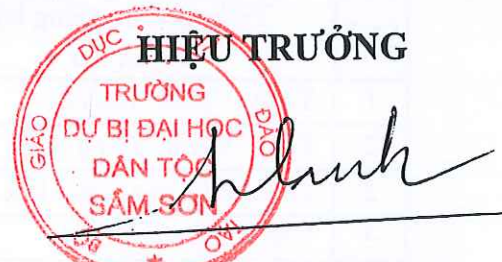 HIỆU TRƯỞNG
BỘ GIÁO DỤC ĐÀO TẠO
TRƯỜNG
DỰ BỊ ĐẠI HỌC
DÂN TỘC
SẦM SƠN